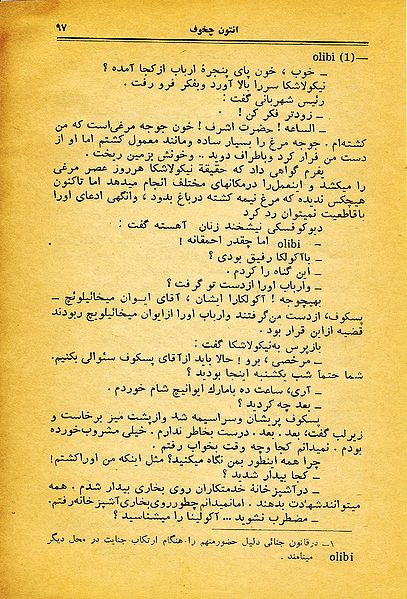 ۹۷ انتون چخوف
olibi (1)—
ـ خوب ، خون پای پنجرهٔ ارباب ازکجا آمده ؟
نیکولاشکا سررا بالا آورد وبفکر فرو رفت .
رئیس شهربانی گفت :
ـ زودتر فکر کن ! .
ـ الساعه ! حضرت اشرف ! خون جوجه مرغی‌است که من
کشته‌ام . جوجه مرغ را بسیار ساده ومانند معمول کشتم اما او از
دست من فرار کرد وباطراف دوید .. وخونش بزمین ریخت .
یفرم گواهی داد که حقیقة نیکولاشکا هرروز عصر مرغی
را میکشد و اینعمل‌را درمکانهای مختلف انجام میدهد اما تاکنون
هیچکس ندیده که مرغ نیمه کشته درباغ بدود ، وانگهی ادعای اورا
باقاطعیت نمیتوان رد کرد
دیوکوفسکی نیشخند زنان آهسته گفت :
ـ olibi اما چقدر احمقانه !
ـ باآکولکا رفیق بودی ؟
ـ این گناه را کردم .
ـ وارباب اورا ازدست تو گرفت ؟
ـ بهیچوجه ! آکولکارا ایشان ، آقای ایوان میخائیلوئچ
پسکوف، ازدست من گرفتند وارباب اورا ازایوان میخائیلویچ ربودند
قضیه ازاین قرار بود .
بازپرس به‌نیکولاشکا گفت :
ـ مرخصی ، برو ! حالا باید ازآقای پسکوف سئوالی بکنیم.
شما حتماً شب یکشنبه اینجا بودید ؟
ـ آری، ساعت ده بامارك ایوانیچ شام خوردم .
ـ بعد چه کردید ؟
پسکوف پریشان وسراسیمه شد وازپشت میز برخاست و
زیرلب گفت، بعد . بعد . درست بخاطر ندارم . خیلی مشروب‌خورده
بودم . نمیدانم کجا وچه وقت بخواب رفتم .
چرا همه اینطور بمن نگاه میکنید؟ مثل اینکه من اوراکشتم!
ـ کجا بیدار شدید ؟
ـ درآشپزخانهٔ خدمتکاران روی بخاری بیدار شدم . همه
میتوانندشهادت بدهند . امانمیدانم چطورروی‌بخاری‌آشپزخانه‌رفتم.
ـ مضطرب نشوید ... آکولینا را میشناسید ؟
۱ـ درقانون جنائی دلیل حضورمتهم را هنگام ارتکاب جنایت در محل دیگر
olibi مینامند .